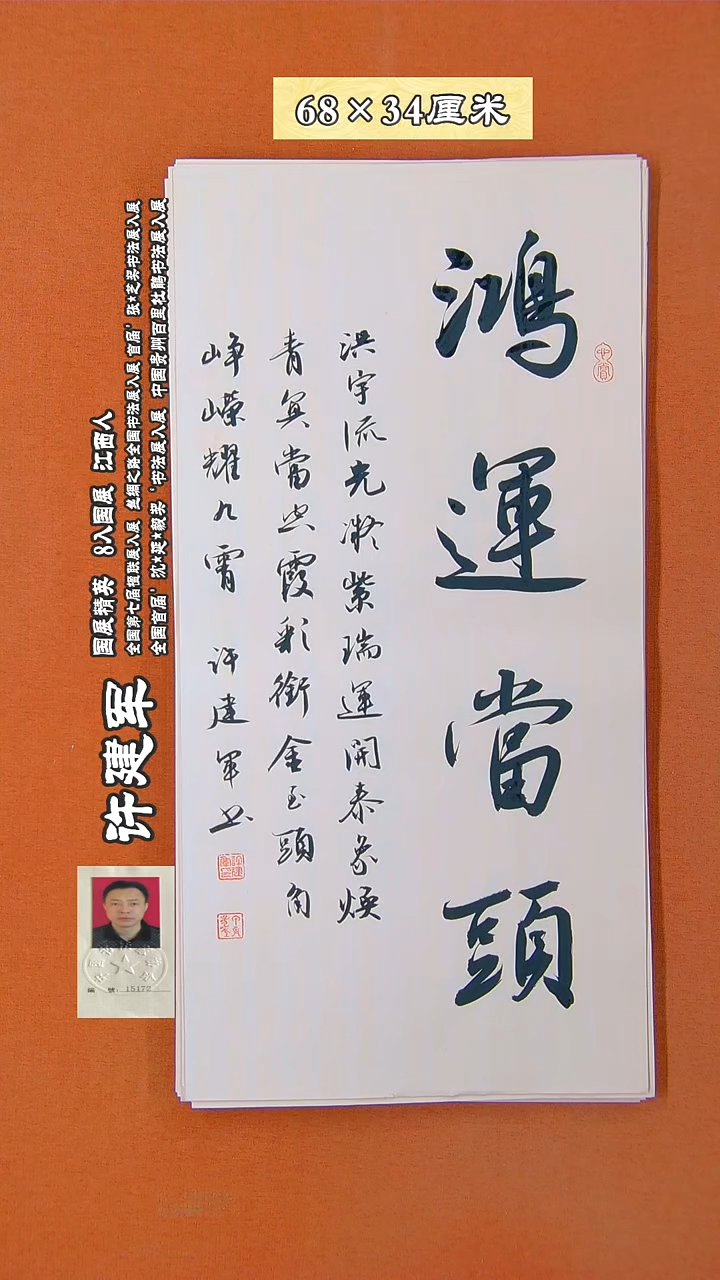 68×34厘米
鴻運當頭
洪宇流光凝紫瑞運開泰象煥
青冥當空霞彩銜金玉頭角
峥嶸耀九霄 许建軍书
许建军
国展精英 8入国展 江西人
全国第七届楹联展入展 丝绸之路全国书法展入展 首届’张*芝奖书法展入展
全国首届’沈*延*毅奖‘书法展入展 中国贵州百里杜鹃书法展入展
號：15172